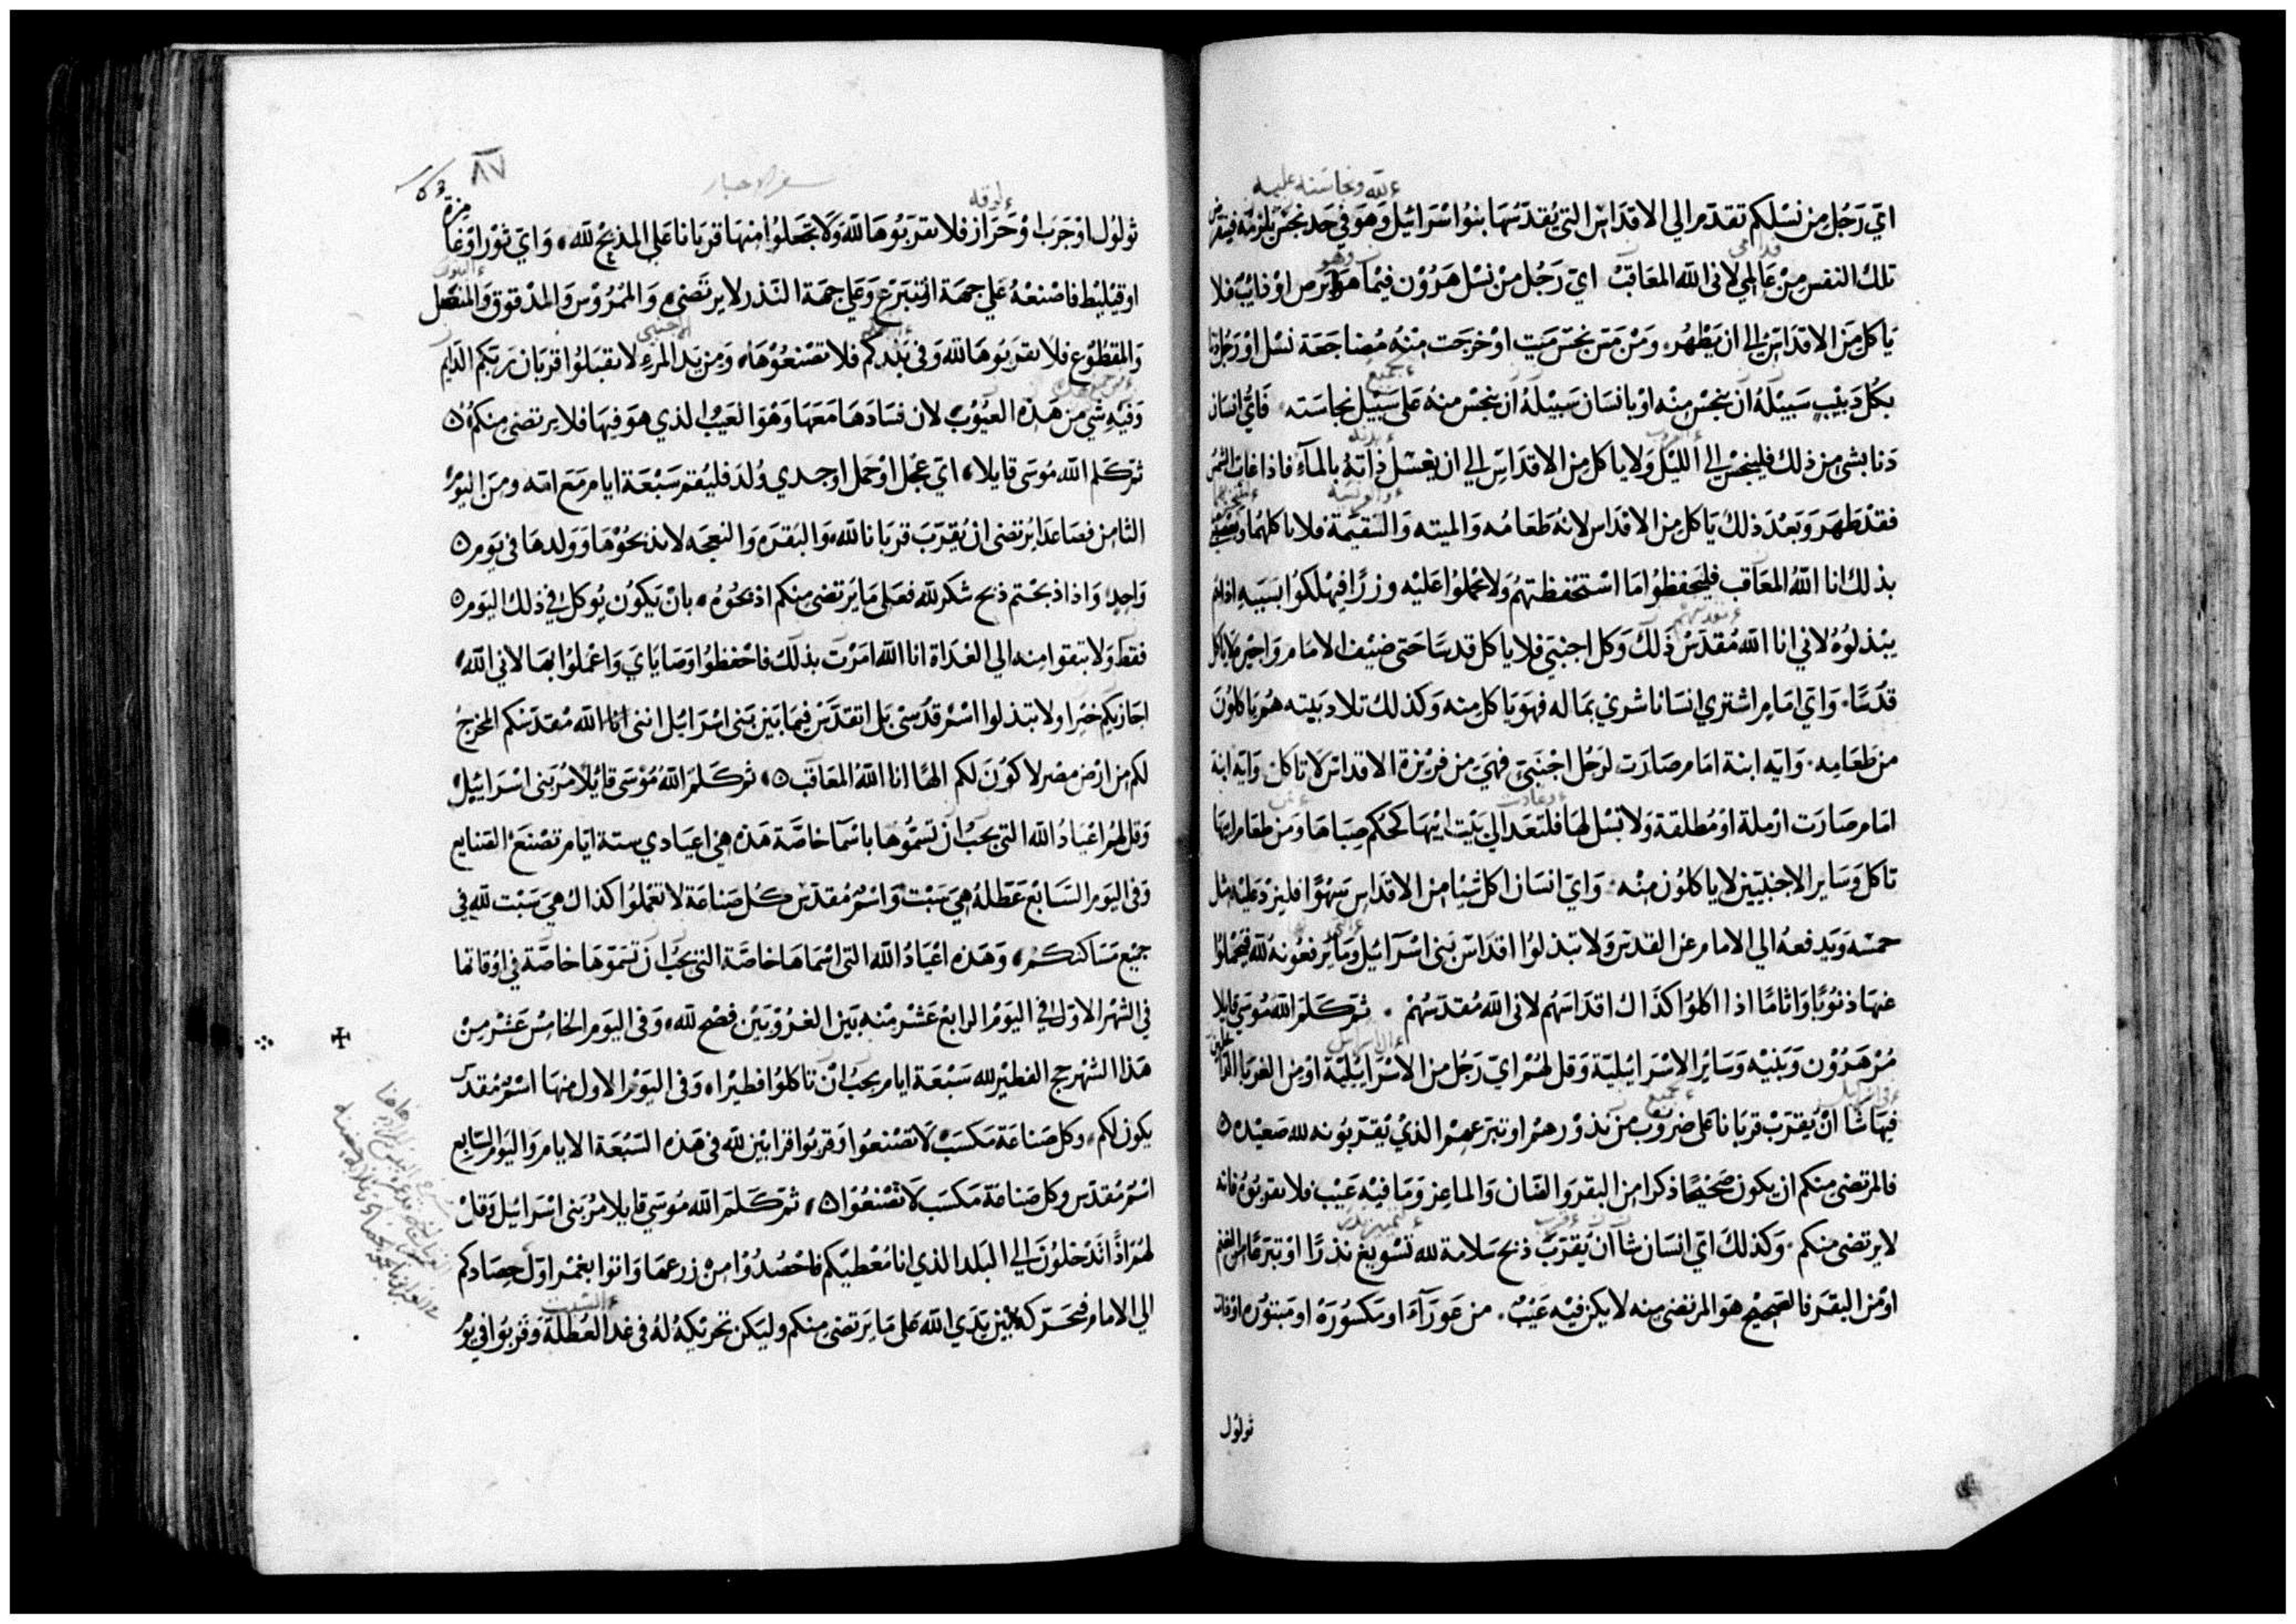 اي رَجُل مِن نسْلكم تقدّم الي الاقدَاسْ التي يُقدّسُهَا بنوُا اسْرَائيل وَهوَ في حَد نجسْ يلزمهُ فينقرض
تلك النفس مِنْ عَالمي لاني الله المعَاقبْ اي رَجُل منْ نسْل هَرُوْن فيمَا هوَ ابرص اوْ ذائبٌ فلا
يَاكل مِنَ الاقدَاسْ الي ان يَطْهُر وَمَنْ مَسّ بنجسْ مَيّت اوْ خرجت منْهُ مُضاجَعَة نسْل اوْ رَجُل دَنا
بكُل دَبيْب سَبيْلهُ ان ينجسْ مِنْه اوْ بانسَان سَبيْلهُ ان ينجسْ منهُ عَلى سَبيْل نجاسَته فَايّ انسَان
دَنا بشي من ذلك فلينجسْ الي الليْل وَلا ياكل من الاقدَاسْ الي ان يغسْل ذاتهُ بالمآء فاذا غابَ الشمسْ
فقدْ طَهرَ وَبَعْدَ ذلك يَاكل مِن الاقدَاس لانهُ طَعَامُه وَالميته وَالسَقيمَة فلا ياكلهُما
بذلك انا اللهُ المعَاقب فليَحفظوُا مَا اسْتحفظتهُم وَلا يحملوُا عَليْه وزرًا فيهلكوُا بسَببه اذا لم
يبْذلوُهُ لاني انا اللهُ مُقدّسْ ذلك وَكل اجنبي فلا ياكل قدسًا حَتى ضيْف الامَام وَاجيْره لا ياكل
قدْسًا وَايّ امَامٍ اشتري انسَانا شري بمَاله فهوَ يَاكل منه وَكذلك تلاد بَيته هُم يَاكلوُنَ
من طَعَامِه وَاية ابنة امَام صَارَت لرَجُل اجْنَبيّ فهيَ من فريْزة الاقداسْ لا تاكل وَاية ابنة
امَام صَارَت ارْملة اوْ مُطلقة وَلا نسْل لهَا فلتعَد الي بَيْت ابيْهَا كحُكم صِبَاهَا وَمن طعَام ابيْهَا
تاكل وَسَاير الاجنبيّين لا ياكلوُن منْه وَايّ انسَان اكل شيْا من الاقدَاسْ سَهْوًا فليزدْ عَليْه مثل
خمسْه وَيَدفعهُ الي الامام من القدس وَلا تبذلوُا اقدَاسْ بَني اسْرَآئيل وَمَا يَرفعوُنهُ لله فيحملوُا
عَنهَا ذنوُبًا وَاثامًا اذا اكلوُا كذاك اقدَاسَهُم لاني الله مُقدّسُهُمْ ثم كَلمَ اللهُ مُوسَي قايلا
مُرْ هَرُوْن وَبَنيْه وَسَائر الاسْرَائيْليّة وَقل لهُمْ ايّ رَجُل من الاسْرَائيْليّة اوْ مِن الغرَبا
فيهَا شا انْ يُقرّبْ قربَانا عَلى ضرُوْب من نذوْرهمْ او تبرّعهمْ الذيْ يُقرّبوُنه لله صَعيْده ٥
فالمرتضي منكم ان يكون صَحيْحًا ذكرا مِن البقر وَالضَان وَالماعِز وَمَا فيْهِ عَيْب فلا تقربوُهُ فانه
لا يرتضي منكم وَكذلك ايّ انسَان شا انْ يُقرّبْ ذبح سَلامة لله تسْويغ نذرًا اوْ تبرّعًا من الغنم
اوْ من البقرَ فالصَحيْح هوَ المرتضي مِنه لا يكن فيْه عَيْبٌ من عَوَرآء اومَكسُورَة او مَبتوُره اوْ ذات
ثولوُل
٨٧
سفر الاحبار
ثولوُل اوْ جَرَب اوْ حَزاز فلا تقرّبوُهَا لله وَلا تجعَلوُا منهَا قربَانا عَلي المذبح لله وَايّ ثوْر اوْ غا
او قيْليط فاصْنعْهُ عَلي جهَة التبرّع وَعَلي جهَة النَذر لا يرتضي وَالممْرُوْس وَالمدْقوق وَالمنْفصل
وَالمقطوُع فلا تقرّبوُهَا لله وَفي بَلدكم فلا تصْنعُوْهَا وَمِن يَد المرْء لا تقبَلوُا قربَان رَبكم الدَايم
وَفيْهِ شي من هَذه العيُوْبْ لان فسَادهَا مَعَهَا وَهُوَ العَيْب الذي هوَ فيهَا فلا يرتضي منكمْ ٥
ثم كلم الله مُوسَى قايلا ايّ عجْل اوْ حمَل او جدي وُلدَ فليُقم سَبْعَة ايام مَعَ امّه ومِنَ اليَوْم
الثامِن فصَاعدَا يُرتضي ان يُقرّبَ قربَانا لله وَالبَقرَه وَالنعجَه لا تذبحوْهَا وَوَلدهَا في يَوم ٥
وَاحِد وَاذا ذبحَتم ذبح شكر لله فعَلى مَا يَرتضي منكم اذبحُوْهُ بان يَكوُن يُوكل في ذلك اليَوم ٥
فقط وَلا تبقوا مِنه الي الغدَاة انا الله امَرْت بذلك فاحْفظوُا وَصَايَايَ وَاعْملوُا بهَا لاني الله
اجَازيكم خيرا ولا تبذلوا اسْم قدْسي بَل اتقدّسْ فيمَا بَيْن بَني اسْرَائيل انني انا الله مُقدّسكم المخرج
لكم مِن ارْض مصْر لاكوُنَ لكم الهًا انا اللهُ المعَاقب ٥ ثم كَلمَ اللهُ مُوْسَى قايْلا مُرْ بَني اسْرَايْيْل
وَقل لهُم اعْيادُ الله التي يجبْ ان تسَمّوُها باسْمَا خاصّة هَذه هي اعيَادي ستة ايّام تصْنعَ الصَنايع
وَفي اليَوم السَابع عَطلة هيَ سَبْت وَاسْمٌ مُقدّس كُل صَناعَة لا تعْملوُا كذاك هيَ سَبْت لله في
جَميْع مَسَاكنكمْ وَهَذه اعْيَادُ الله التي اسْمَاهَا خاصّة التي يجبُ ان تسَمّوْهَا خاصّة في اوْقاتها
في الشهْر الاوَل في اليَوْم الرَابع عَشرْ منْهِ بَيْن الغرُوْبَيْن فصْح لله وَفي اليَوم الخامِسْ عَشْر مِنْ
هَذا الشهْر حج الفطيْر لله سَبْعَة ايام يجبُ انْ تاكلوُا فطيْرا وَفي اليَوْم الاول منهَا اسْم مُقدّس
يكون لكم وكل صَناعَة مَكسَبْ لا تصْنعوُا وَقربوُا قرابيْن لله في هَذه السَبْعَة الايام وَاليَوم السَابع
اسْمٌ مُقدّس وكل صَناعَة مَكسَب لا تصْنعُوا ٥ ثم كَلمَ اللهُ مُوسَي قايلا مُرْ بَني اسْرَائيل وَقلْ
لهُم اذا تدْخلوُنَ الي البَلد الذي انا مُعْطيْكم فاحْصُدُوْا مِنْ زرعهَا وَاتوا بغمْر اوّل حِصَادكم
الي الامام فحَرّكه بَيْن يَدَي الله عَلى مَا يَرتضي منكم وليَكن تحريْكهُ لهُ في غد العُطلة وَقربوُا في يَوْم